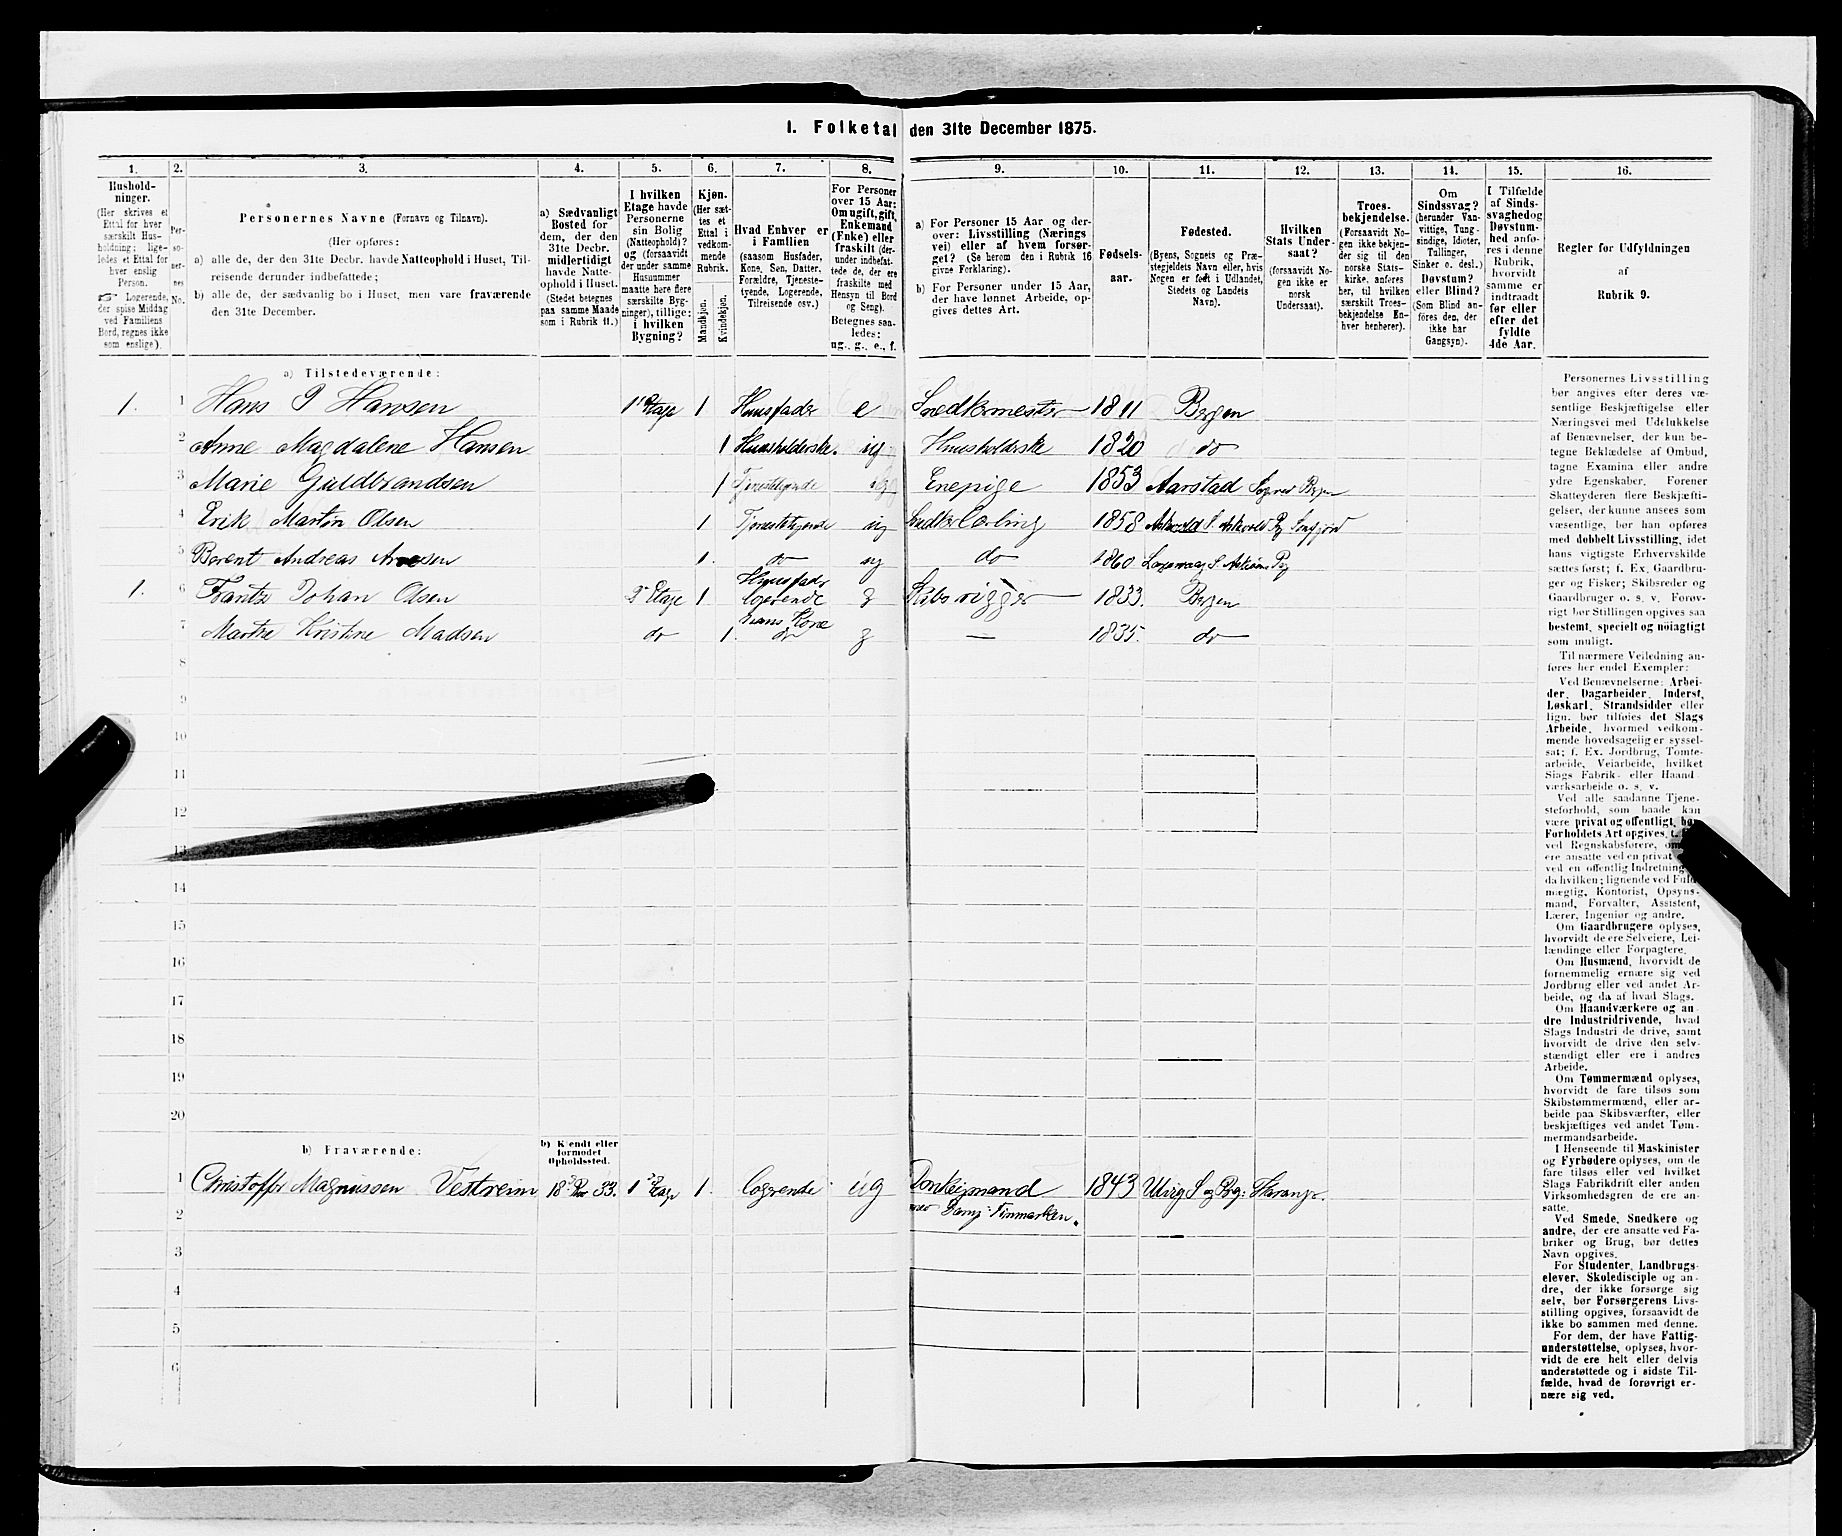 I. Folketal den 31te December 1875.
1.
2.
3.
4.
5.
6.
7.
8.
9.
10.
11.
12.
13.
14.
15.
16.
Hushold-
ninger.
(Her skrives et
Ettal for hver
særskilt Hus-
holdning; lige-
ledes et Ettal for
hver enslig
Person.
☞ Logerende,
der spise Middag
ved Familiens
Bord, regnes ikke
som enslige).
Per-
so-
ner-
nes
No.
Personernes Navne (Fornavn og Tilnavn).
(Her opføres:
a) alle de, der den 31te Decbr. havde Natteophold i Huset, Til-
reisende derunder indbefattede;
b) alle de, der sædvanlig bo i Huset, men vare fraværende
den 31te December.
a) Sædvanligt
Bosted for
dem, der den
31te Decbr.
midlertidigt
havde Natte-
ophold i Huset.
(Stedet betegnes
paa samme Maade
som i Rubrik 11.)
I hvilken
Etage havde
Personerne
sin Bolig
(Natteophold)?
og (forsaavidt
der under samme
Husnummer
maatte høre flere
særskilte Byg-
ninger), tillige:
i hvilken
Bygning?
Kjøn.
(Her sæt-
tes et
Ettal i
vedkom-
mende
Rubrik.
Mandkjøn.
Kvindekjøn.
Hvad Enhver er
i Familien
(saasom Husfader,
Kone, Søn, Datter,
Forældre, Tjeneste-
tyende, Logerende,
Tilreisende osv.)
For Personer
over 15 Aar:
Om ugift, gift,
Enkemand
(Enke) eller
fraskilt (der-
under indbefat-
tede de, der ere
fraskilte med
Hensyn til Bord
og Seng).
Betegnes saa-
ledes:
ug., g., e., f.
a) For Personer 15 Aar og der-
over: Livsstilling (Nærings
vei) eller af hvem forsør-
get? (Se herom den i Rubrik 16
givne Forklaring).
b) For Personer under 15 Aar,
der have lønnet Arbeide, op-
gives dettes Art.
Fødsels-
aar.
Fødested.
(Byens, Sognets og Præ-
stegjeldets Navn eller, hvis
Nogen er født i Udlandet,
Stedets og Landets
Navn).
Hvilken
Stats Under-
saat?
(forsaavidt No-
gen ikke er
norsk
Undersaat).
Troes-
bekjendelse.
(Forsaavidt No-
gen ikke bekjen-
der sig til den
norske Stats-
kirke, anføres
her, til hvilken
særskilt Troes-
bekjendelse En-
hver henhører).
Om
Sindssvag?
(herunder Van-
vittige, Tung-
sindige, Idioter,
Tullinger,
Sinker o. desl.)
Døvstum?
eller Blind?
(Som Blind an-
føres den, der
ikke har
Gangsyn).
I Tilfælde
af Sinds-
svaghed og
Døvstum-
hed anfø-
res i denne
Rubrik,
hvorvidt
samme er
indtraadt
før eller
efter det
fyldte
4de Aar.
Regler for Udfyldningen
af
Rubrik 9.
a) Tilstedeværende:
1. 1 Hans Hansen 1 Etage 1 Huusfader e Snedkermester 1811 Bergen
2 Anne Magdalene Hansen 1 Huusholderske ug Huusholderske 1820 do
3 Marie Guldbrandsen 1 Tjenestetyende ug Enepige 1853 Aarstad Sogn Bergen
4 Erik Martin Olsen 1 Tjenestetyende ug Snedkerlærling 1858 Askvold S. Askvold Pg
5 Berent Andreas 1. do ug do 1860
1. 6 Frantz Johan Olsen 2 Etage 1 Huusfader logerende g Skibsrigger 1833. Bergen
7 Marthe Kristine Madsen do 1. hans Kone do g — 1835. do
8
9
10
11
12
13
14
15
16
17
18
19
20
b) Fraværende:
b) Kjendt eller
formodet
Opholdssted.
1 Christoffer Magnussen Vestreim 1 Etage 1. logerende ug Donkeymand 1843
2
3
4
5
6
Personernes Livsstilling
bør angives efter deres væ-
sentlige Beskjæftigelse eller
Næringsvei med Udelukkelse
af Benævnelser, der kun be-
tegne Beklædelse af Ombud,
tagne Examina eller andre
ydre Egenskaber. Forener
Skatteyderen flere Beskjæfti-
gelser, der kunne ansees som
væsentlige, bør han opføres
med dobbelt Livsstilling, idet
hans vigtigste Erhvervskilde
sættes først; f. Ex. Gaardbru-
ger og Fisker; Skibsreder og
Gaardbruger o. s. v. Forøv-
rigt bør Stillingen opgives saa
bestemt, specielt og nøiagtigt
som muligt.
Til nærmere Veiledning an-
føres her endel Exempler:
Ved Benævnelserne: Arbei-
der, Dagarbeider, Inderst,
Løskarl, Strandsidder eller
lign. bør tilføies det Slags
Arbeide, hvormed vedkom-
mende hovedsagelig er syssel-
sat; f. Ex. Jordbrug, Tomte-
arbeide, Veiarbeide, hvilket
Slags Fabrik- eller Haand-
værksarbeide o. s. v.
Ved alle saadanne Tjene-
steforhold, som baade kan
være privat og offentligt, bør
Forholdets Art opgives, t.
ved Regnskabsførere,
ere ansatte ved en privat
ved en offentlig Indretning
da hvilken; lignende ved Fuld-
mægtig, Kontorist, Opsyns-
mand, Forvalter, Assistent,
Lærer, Ingeniør og andre.
Om Gaardbrugere oplyses,
hvorvidt de ere Selveiere, Lei-
lændinge eller Forpagtere.
Om Husmænd, hvorvidt de
fornemmelig ernære sig ved
Jordbrug eller ved andet Ar-
beide, og da af hvad Slags.
Om Haandværkere og an-
dre Industridrivende, hvad
Slags Industri de drive, samt
hvorvidt de drive den selv-
stændigt eller ere i andres
Arbeide.
Om Tømmermænd oplyses,
hvorvidt de fare tilsøs som
Skibstømmermænd, eller ar-
beide paa Skibsværfter, eller
beskjæftiges ved andet Tøm-
mermandsarbeide.
I Henseende til Maskinister
og Fyrbødere oplyses, om de
fare tilsøs eller ved hvilket
Slags Fabrikdrift eller anden
Virksomhedsgren de ere an-
satte.
Ved Smede, Snedkere og
andre, der ere ansatte ved Fa-
briker og Brug, bør dettes
Navn opgives.
For Studenter, Landbrugs-
elever, Skoledisciple og an-
dre, der ikke forsørge sig
selv, bør Forsørgerens Livs-
stilling opgives, forsaavidt de
ikke bo sammen med denne.
For dem, der have Fattig-
understøttelse, oplyses, hvor-
vidt de ere helt eller delvis
understøttede og i sidste Til-
fælde, hvad de forøvrigt er-
nære sig ved.